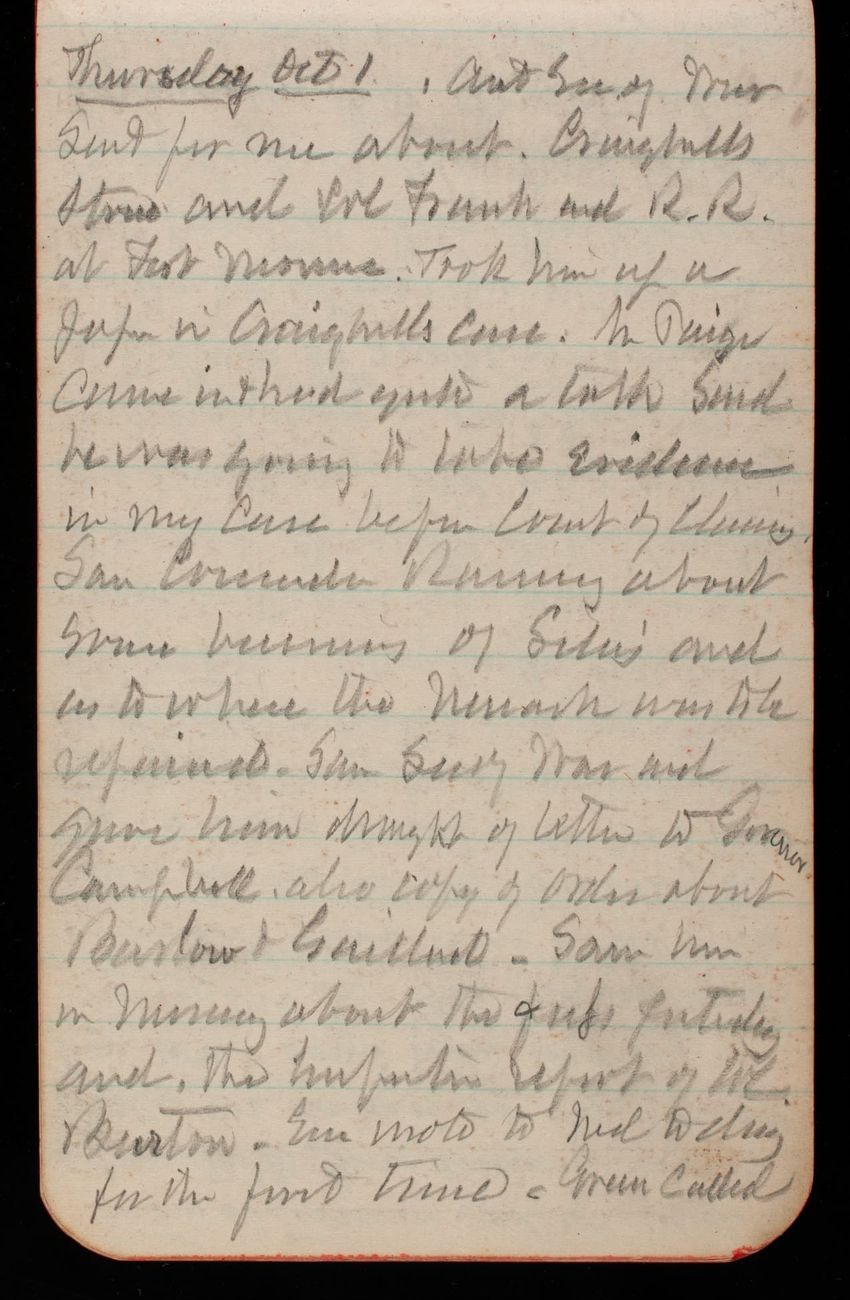 Thursday Oct 1. Act Secy of War
Send for me about. Craighills
and Col Frank and R.R.
at Fort Monroe. Took him up a
paper in Craighills case. Mr Paige
came in & had quite a talk Said
he was going to take Evidence
in my case before Court of Claims.
Saw Commander about
some of and
as to where the Newark was to be
repaired. Saw Secy War and
gave him draught of letter to Governor
Campbell. also copy of order about
Barlow & Gaillard - Saw him
in Morning about the yesterday
and. the Inspection report of Col
Burton. wrote to Ned to day
for the first time - Green Called